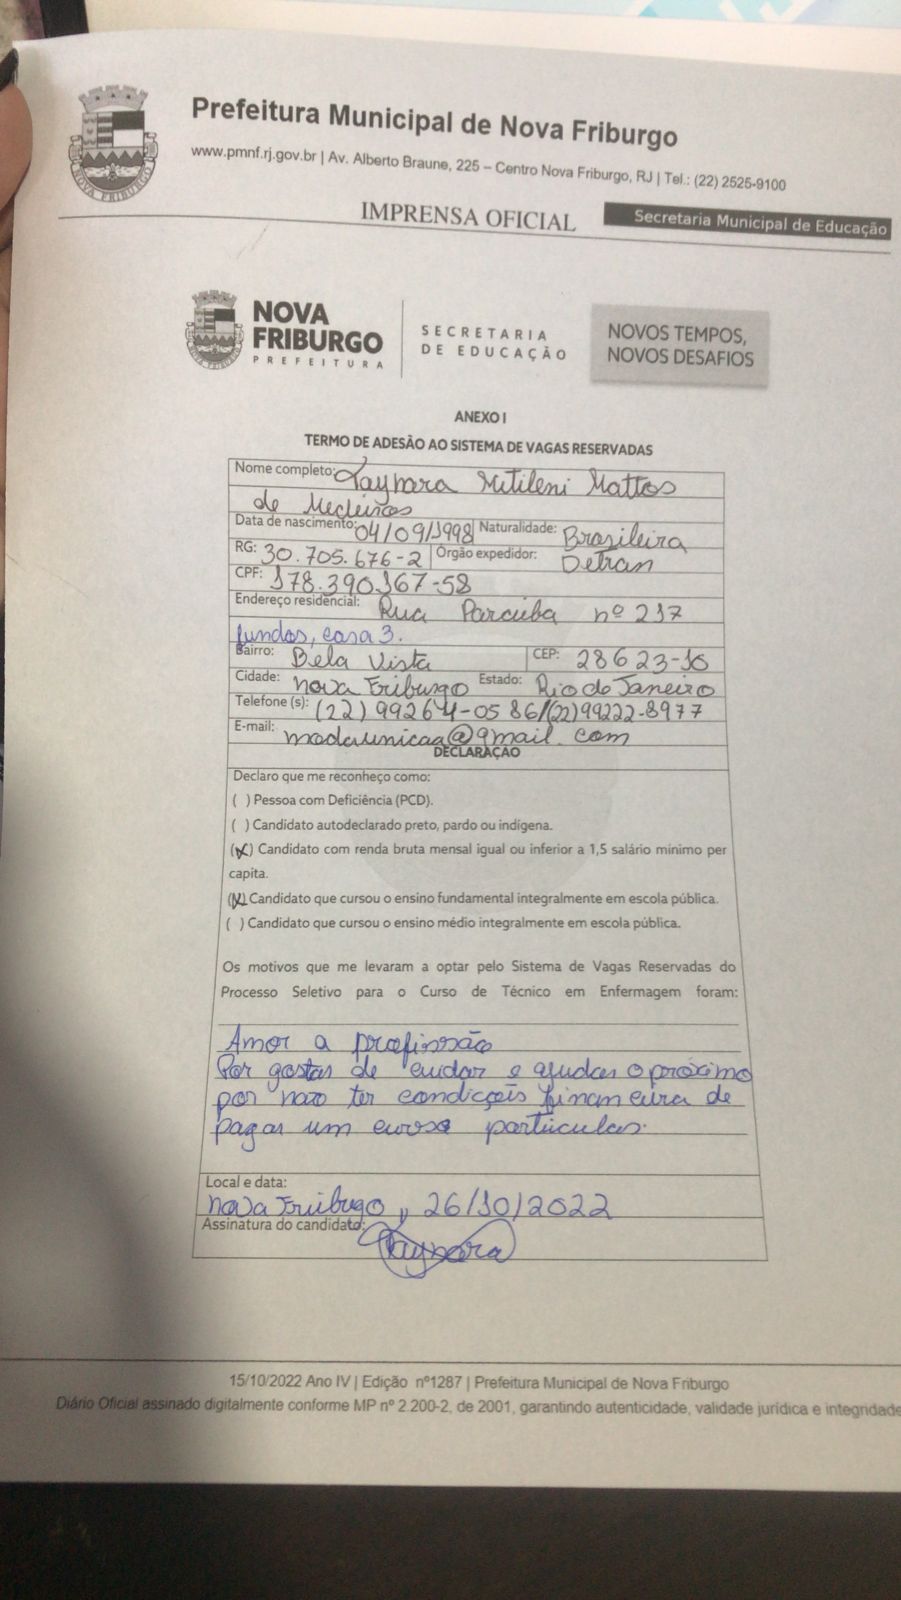 Prefeitura Municipal de Nova Friburgo
www.pmnf.rj.gov.br | Av. Alberto Braune, 225 – Centro Nova Friburgo, RJ | Tel.: (22) 2525-9100
IMPRENSA OFICIAL
Secretaria Municipal de Educação
NOVA FRIBURGO
NOVA
FRIBURGO
PREFEITURA
SECRETARIA
DE EDUCAÇÃO
NOVOS TEMPOS,
NOVOS DESAFIOS
ANEXO I
TERMO DE ADESÃO AO SISTEMA DE VAGAS RESERVADAS
Nome completo: Taynara Mitileni Mattos
de Medeiros
Data de nascimento: 04/09/1998 Naturalidade: Brasileira
RG: 30.705.676-2 Órgão expedidor: Detran
CPF: 178.390.167-58
Endereço residencial: Rua nº 217
fundos, casa 3.
Bairro: Bela Vista CEP: 28623-10
Cidade: Nova Friburgo Estado: Rio de Janeiro
Telefone (s): (22) 99264-0586/(22)99222-8977
E-mail: modaunicaa@gmail.com
DECLARAÇÃO
Declaro que me reconheço como:
( ) Pessoa com Deficiência (PCD).
( ) Candidato autodeclarado preto, pardo ou indígena.
(X) Candidato com renda bruta mensal igual ou inferior a 1,5 salário mínimo per
capita.
(X) Candidato que cursou o ensino fundamental integralmente em escola pública.
( ) Candidato que cursou o ensino médio integralmente em escola pública.
Os motivos que me levaram a optar pelo Sistema de Vagas Reservadas do
Processo Seletivo para o Curso de Técnico em Enfermagem foram:
Amor a profissão
Por gostar de cuidar e ajudar o próximo
por não ter condições financeira de
pagar um curso particular.
Local e data:
Nova Friburgo, 26/10/2022
Assinatura do candidato: Taynara
15/10/2022 Ano IV | Edição nº1287 | Prefeitura Municipal de Nova Friburgo
Diário Oficial assinado digitalmente conforme MP nº 2.200-2, de 2001, garantindo autenticidade, validade jurídica e integridade